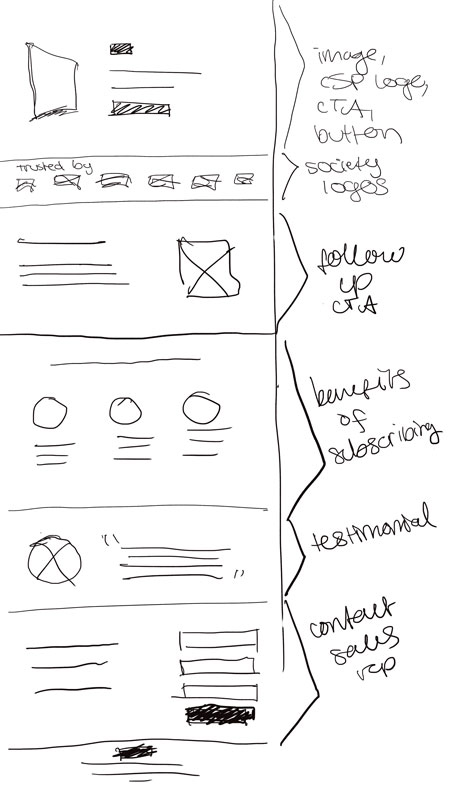 image,
CSP logo,
CTA,
button
trusted by
society
logos
follow
up
CTA
benefits
of
subscribing
testimonial
contact
sales
rep